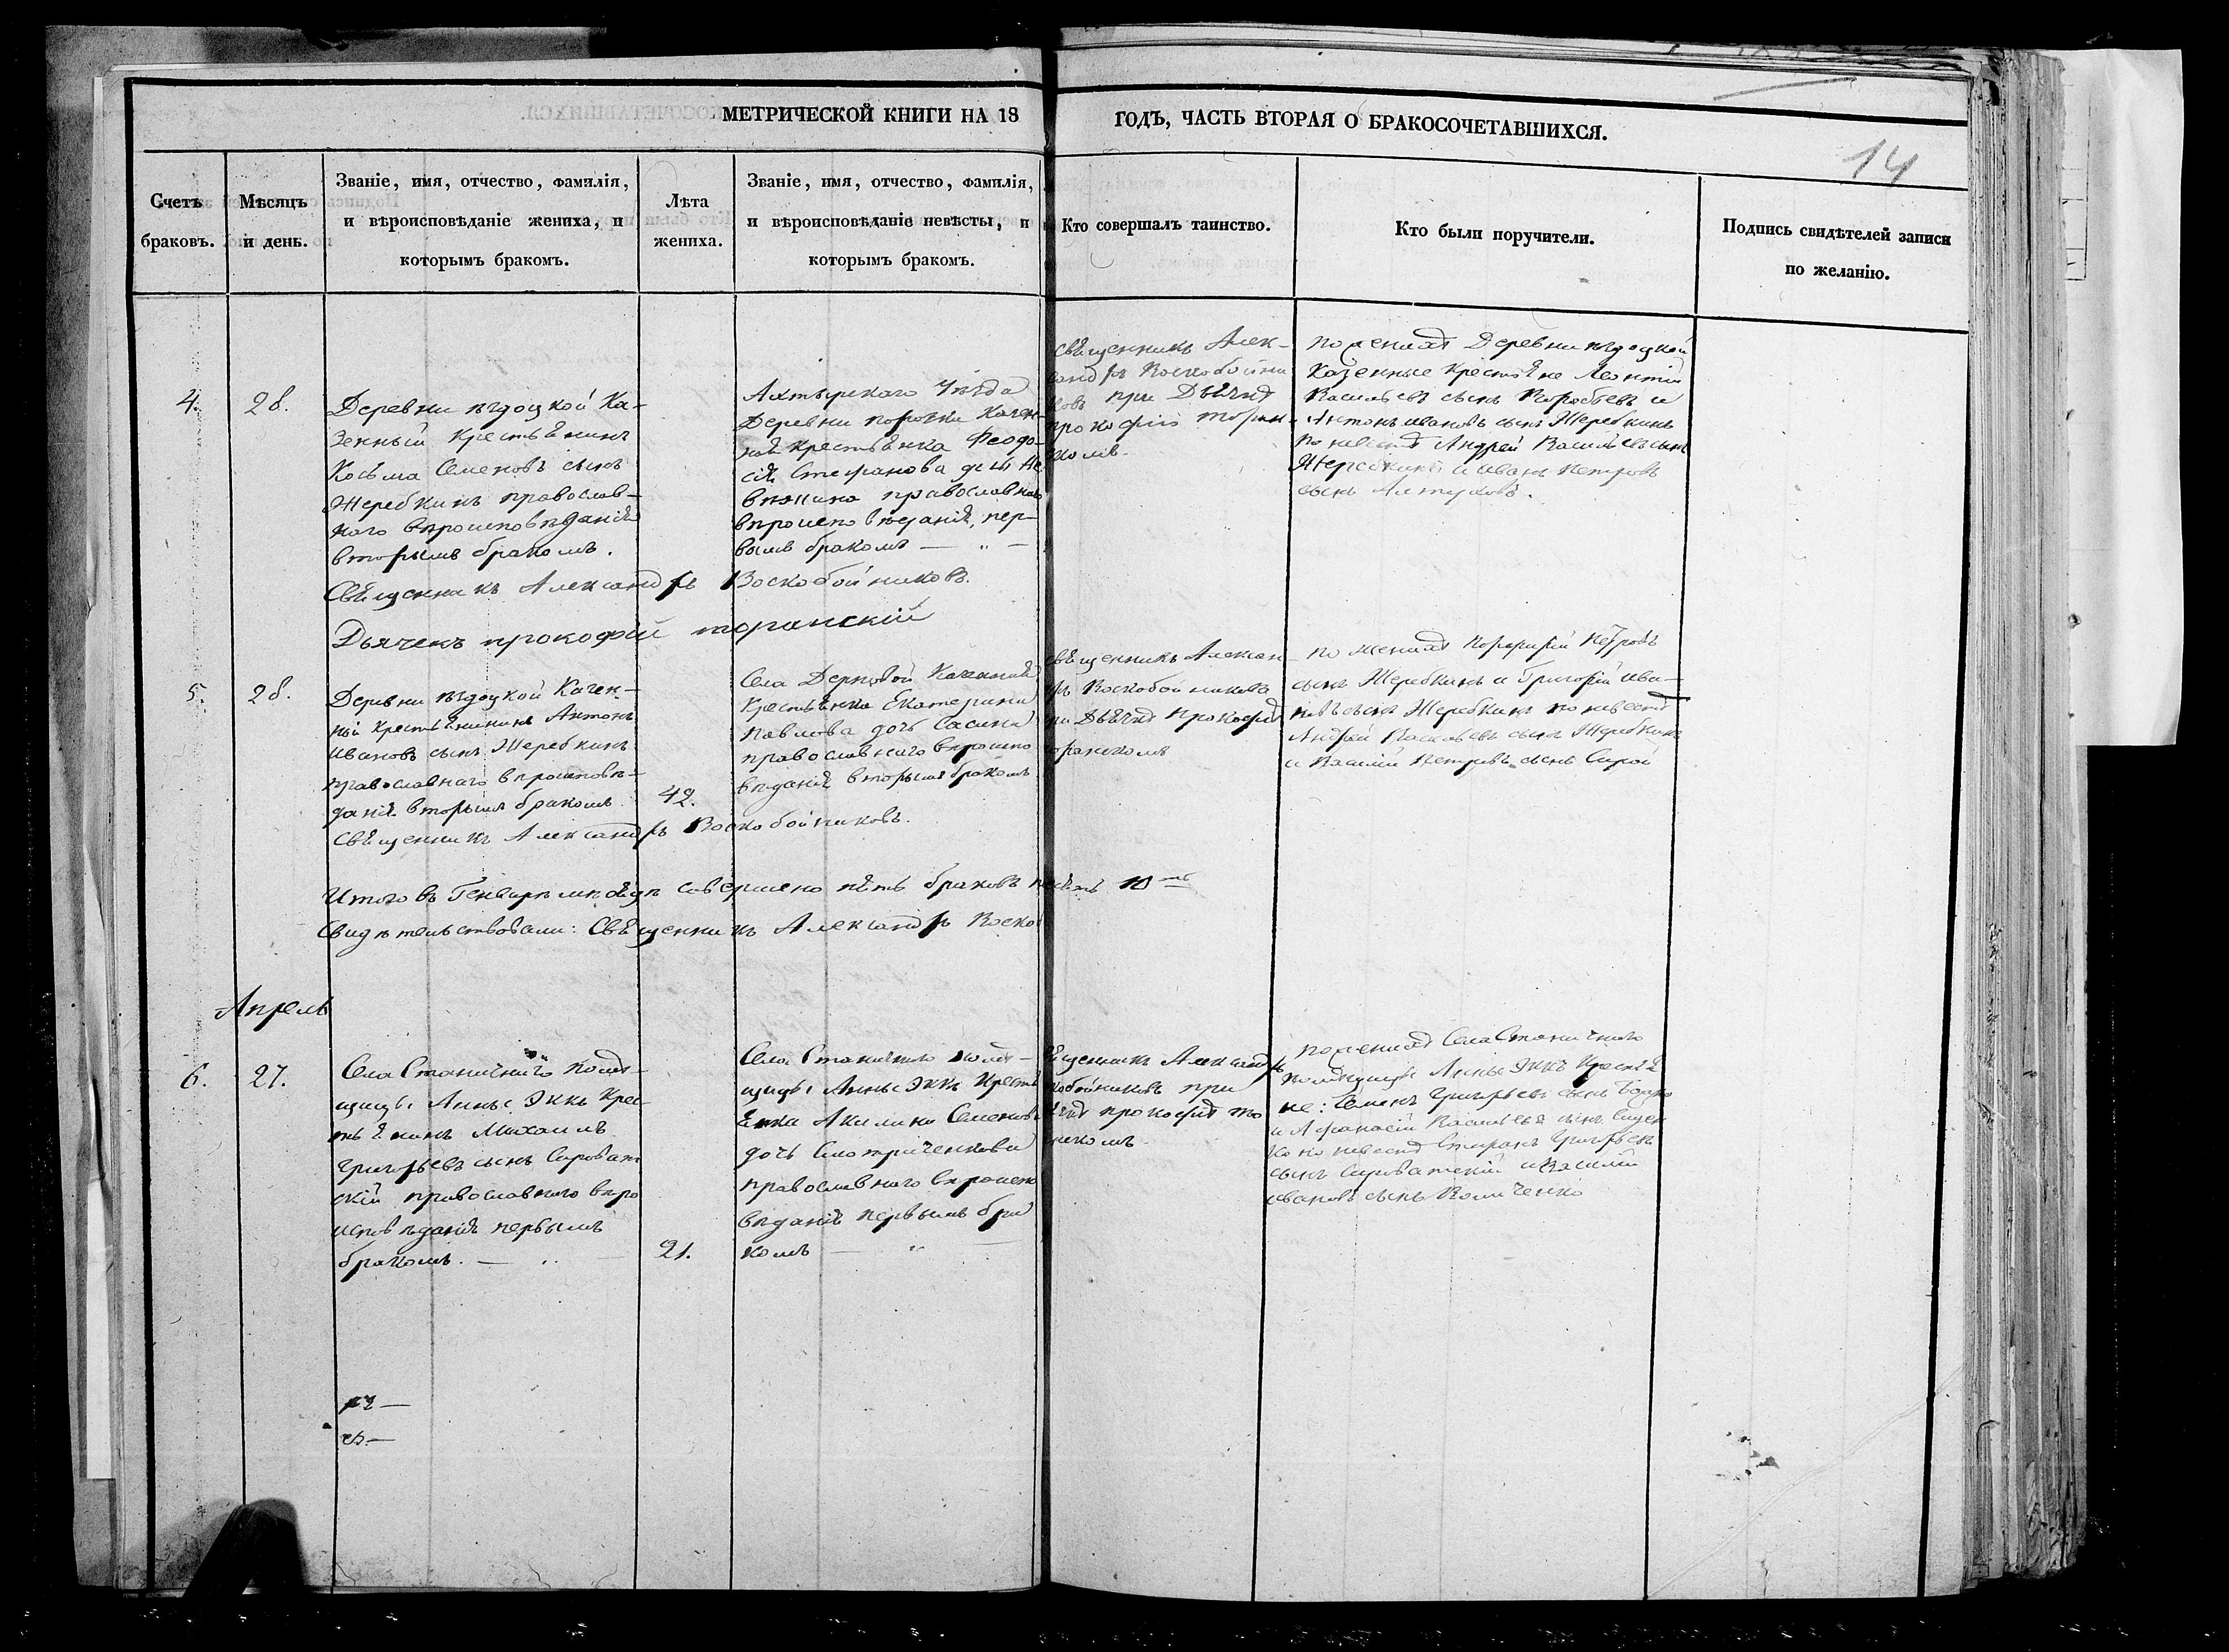 МЕТРИЧЕСКОЙ КНИГИ НА 18 ГОДЪ, ЧАСТЬ ВТОРАЯ О БРАКОСОЧЕТАВШИХСЯ.
14
Счетъ
браковъ.
Мѣсяцъ
и день.
Званіе, имя, отчество, фамилія,
и вѣроисповѣданіе жениха, и
которымъ бракомъ.
Лѣта
жениха.
Званіе, имя, отчество, фамилія,
и вѣроисповѣданіе невѣсты, и
которымъ бракомъ.
Кто совершалъ таинство.
Кто были поручители.
Подпись свидѣтелей записи
по желанію.
4.
28.
Деревни Ка-
зенный крестьянинъ
Косьма Семеновъ сынъ
Жеребкинъ православ-
наго вѣроисповѣданія
вторымъ бракомъ.
Ахтырскаго Уѣзда
Деревни казен-
ная крестьянка Феодо-
сія Стефанова дочь
православнаго
вѣроисповѣданія, пер-
вымъ бракомъ
священникъ Алек-
сандръ Воскобойни
ковъ при Дьячкѣ
прокофіѣ торан-
по женихѣ Деревни
Казенные крестьяне Леонтій
Васильевъ сынъ и
Антонъ ивановъ сынъ Жеребкинъ
по невестѣ Андрей Васильевъ сынъ
Жеребкинъ и иванъ петровъ
сынъ
Священникъ Александръ Воскобойниковъ.
Дьячекъ прокофій торанскій
5.
28.
Деревни Казен-
ный крестьянинъ Антонъ
ивановъ сынъ Жеребкинъ
православнаго вѣроисповѣ-
данія вторымъ бракомъ
42.
Села Казенная
крестьянка Екатерина
павлова дочь Сасина
православнаго вѣроиспо
вѣданія вторымъ бракомъ
священникъ Алексан-
дръ Воскобойниковъ
при Дьячкѣ прокофіѣ
торанскомъ
по женихѣ Порфирій петровъ
сынъ Жеребкинъ и Григорій ива-
новъ сынъ Жеребкинъ по невестѣ
Андрей Васильевъ сынъ Жеребкинъ
и Василій петровъ сынъ
Священникъ Александръ Воскобойниковъ.
Итого въ Генварѣ мѣсяцѣ совершено пять браковъ
Свидѣтельствовали: Священникъ Александръ Воско
Апрель
6.
27.
Села Станичнаго помѣ-
щицы Анны Эккъ крес-
тьянинъ Михаилъ
Григорьевъ сынъ Сироват
скій православнаго вѣро
исповѣданія первымъ
бракомъ.
21.
Села Станичнаго помѣ-
щицы Анны Эккъ кресть
янка Акилина Семенова
дочь
православнаго вѣроиспо
вѣданія первымъ бра
комъ
священникъ Александръ
Воскобойниковъ при
Дьячкѣ прокофіѣ то
ранскомъ
по женихѣ Села Станичнаго
помѣщицы Анны Эккъ крестья
не: Семенъ Григорьевъ сынъ
и Афанасій Васильевъ сынъ
по невестѣ Григорьевъ
сынъ Сироватскій и Василій
ивановъ сынъ